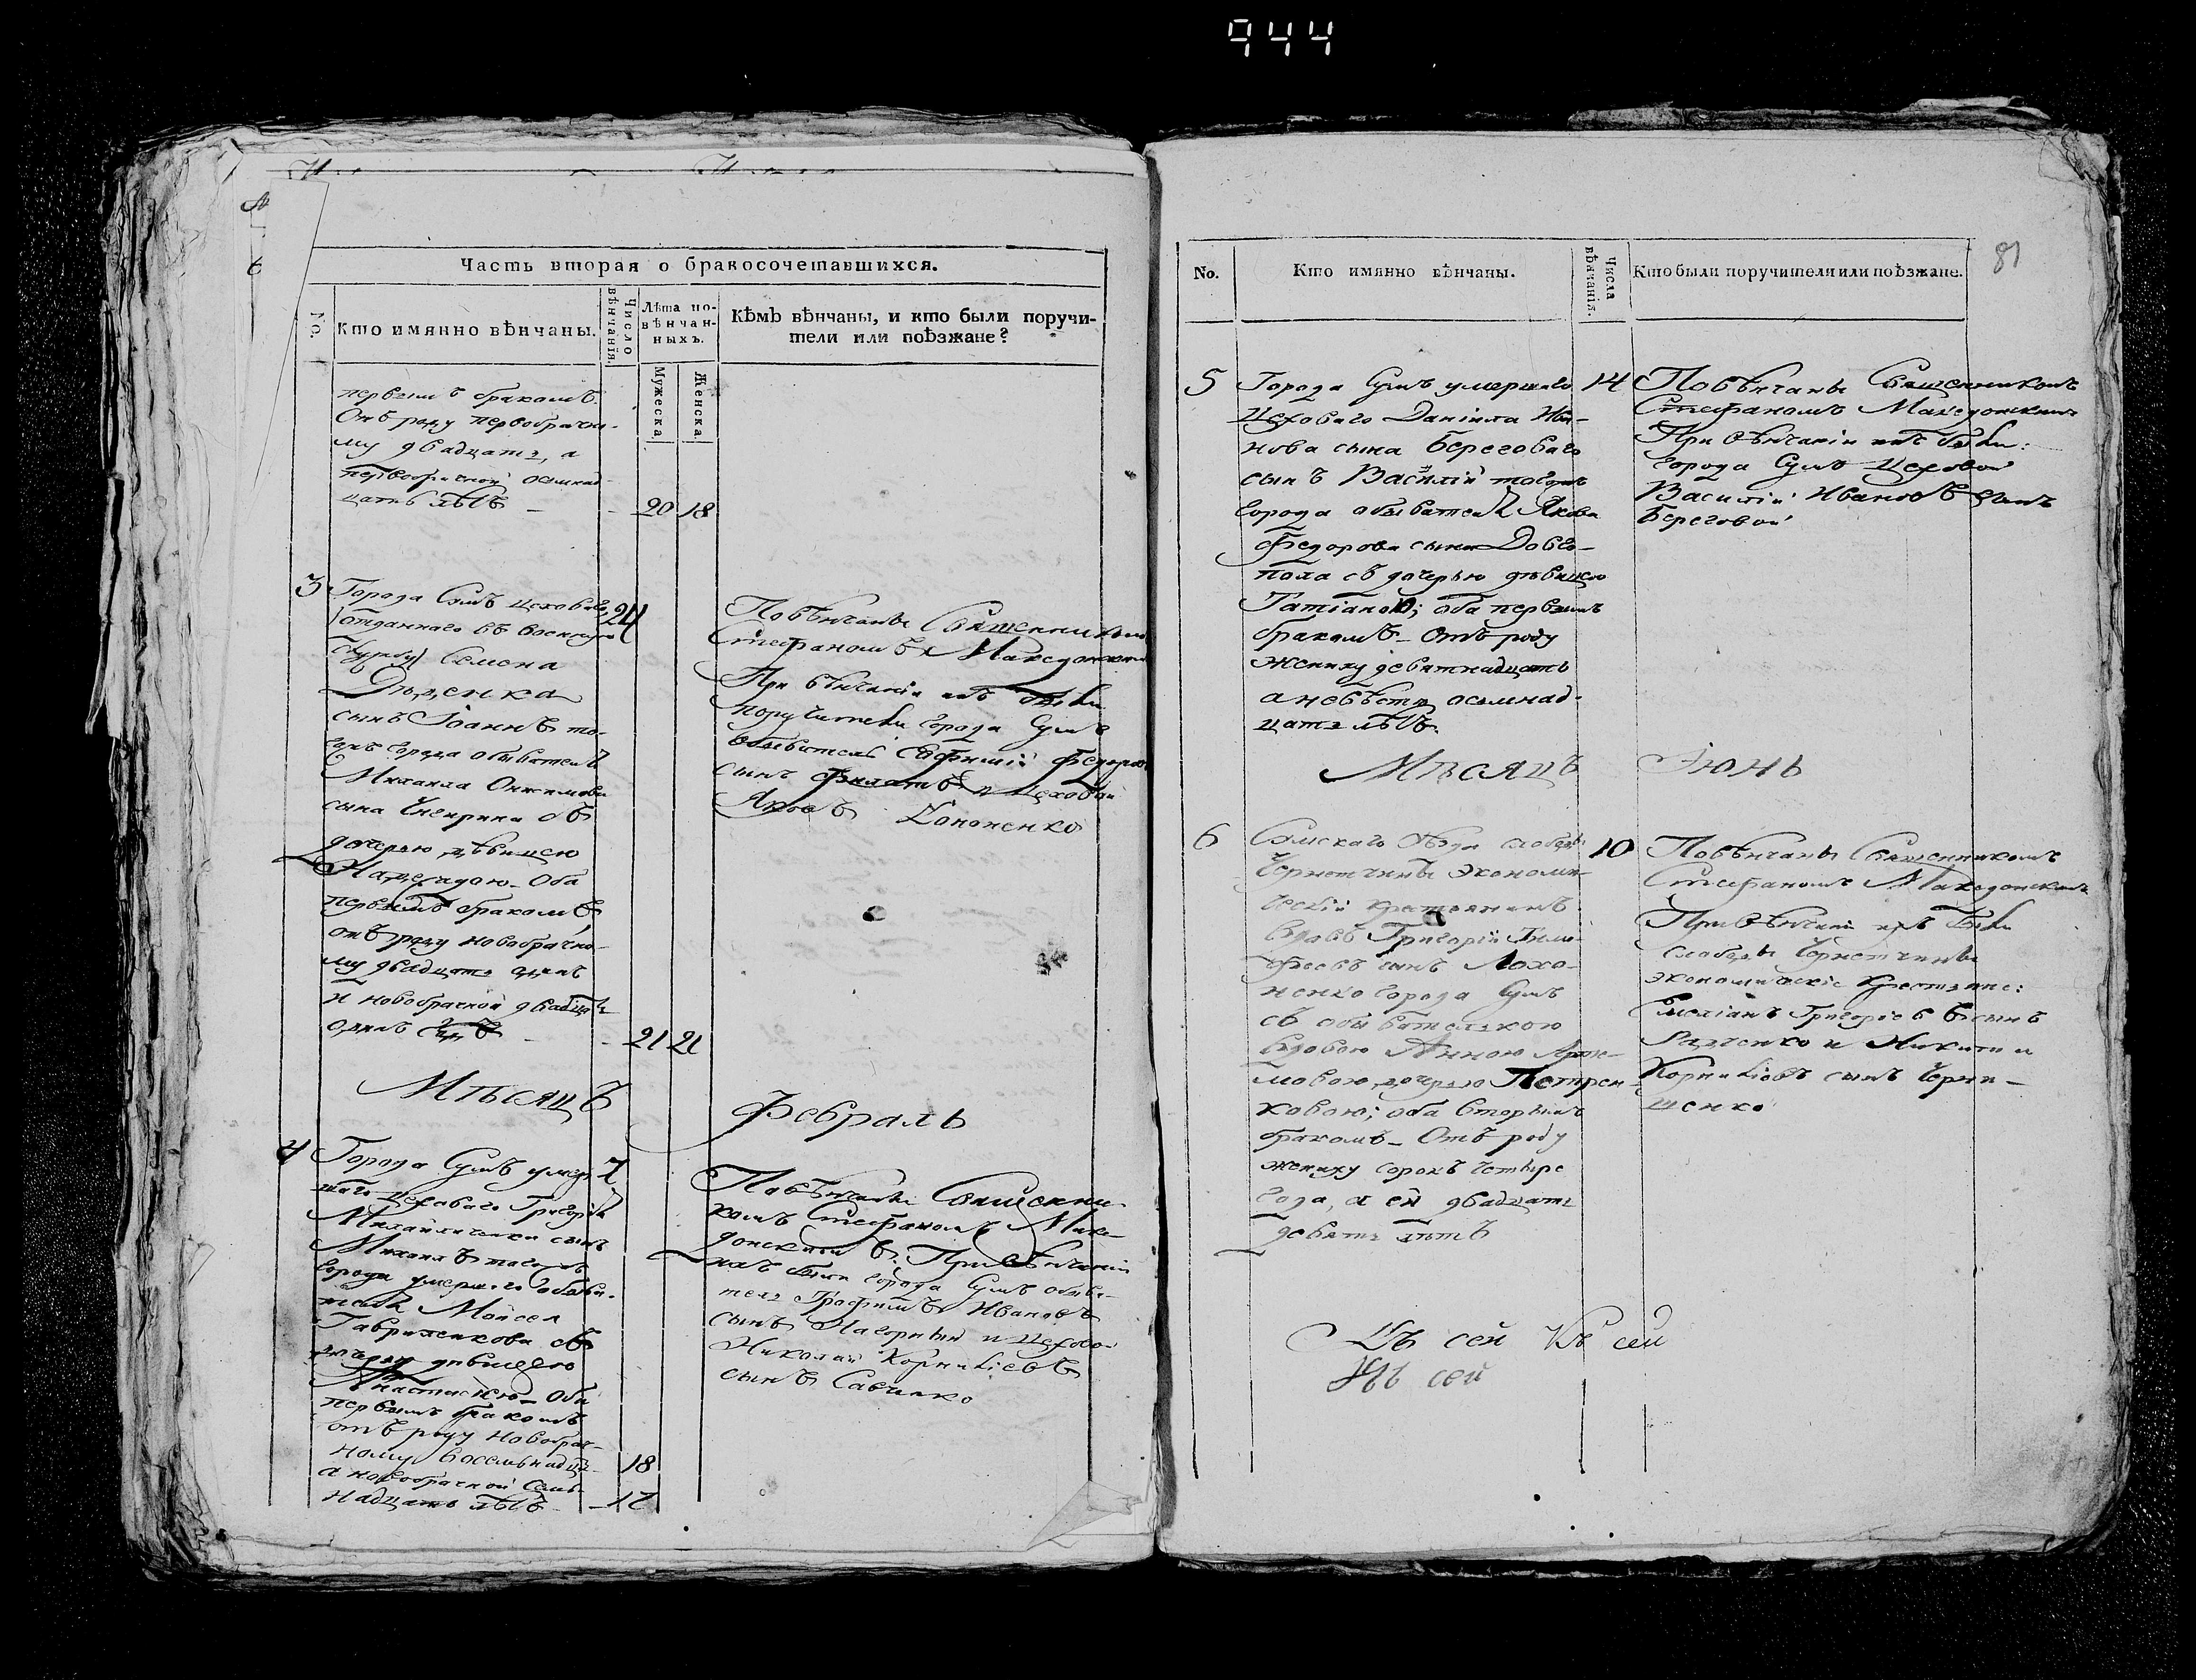 944
Часть вторая о бракосочетавшихся.
No.
Кто имянно вѣнчаны.
Число вѣнчанія.
Лѣта но-
вѣнчан-
ныхъ.
Мужеска
Женска
Кѣмъ вѣнчаны, и кто были поручи-
тели или поѣзжане?
первымъ бракомъ.
Отъ роду первобрачно-
му двадцать, а
первобрачной осмнад-
цать лѣтъ
20 18
3
Города Сумъ цеховаго
отданнаго въ военную
службу Семена
сынъ Іоаннъ то-
гожъ города обывателя
Михаила
сына съ
дочерью дѣвицею
Надеждою. Оба
первымъ бракомъ
отъ роду новобрачно-
му двадцать одинъ
и новобрачной двадцать
одинъ
24
21 21
Повѣнчаны Священникомъ
Стефаномъ Македонскимъ
При вѣнчаніи ихъ были
поручители города Сумъ
обыватель Евфимій Федоровъ
сынъ и цеховой
Яковъ Кононенко
Мѣсяцъ
Февраль
4
Города Сумъ умер-
шаго цеховаго Григорія
Михайличенки сынъ
Михаилъ тогожъ
города умершаго обыва-
теля Мойсея
Гавриленкова съ
дочерью дѣвицею
Анастасією. Оба
первымъ бракомъ
отъ роду новобрач-
ному восемьнадца-
а новобрачной семь-
надцать лѣтъ
7
18
17
Повѣнчаны Священни-
комъ Стефаномъ Маке-
донскимъ. При вѣнчаніи
ихъ были города Сумъ обыва-
тель Трофимъ Ивановъ
сынъ Нагорный и цеховой
Николай Корниліевъ
сынъ Савченко
81
No.
Кто имянно вѣнчаны.
Числа вѣнчанія.
Кто были поручители или поѣзжане.
5
Города Сумъ умершаго
цеховаго Даніила Ива-
нова сына Береговаго
сынъ Василій тогожъ
города обывателя Якова
Федорова сына Довго-
пола съ дочерью дѣвицею
Татіаною; оба первымъ
бракомъ. Отъ роду
жениху девятнадцать
а невѣстѣ осьмнад-
цать лѣтъ.
14
Повѣнчаны Священникомъ
Стефаномъ Македонскимъ
При вѣнчаніи ихъ были:
города Сумъ цеховой
Василій Ивановъ сынъ
Береговой
Мѣсяцъ
Іюнь
6
Сумскаго Уѣзда слободы
Чернетчины экономи-
ческій крестьянинъ
вдовъ Григорій Тимо-
феевъ сынъ Лохо-
ненко города Сумъ
съ обывателькою
вдовою Анною Арте-
мовою дочерью Петрен-
ковою; оба вторымъ
бракомъ. Отъ роду
жениху сорокъ четыре
года, а ей двадцать
девять лѣтъ
10
Повѣнчаны Священникомъ
Стефаномъ Македонскимъ
При вѣнчаніи ихъ были
слободы Чернетчины
экономическіе крестьяне:
Емеліанъ Григоріевъ сынъ
Радченко и Никита
Корниліевъ сынъ Черни-
ченко
сей сей
сей